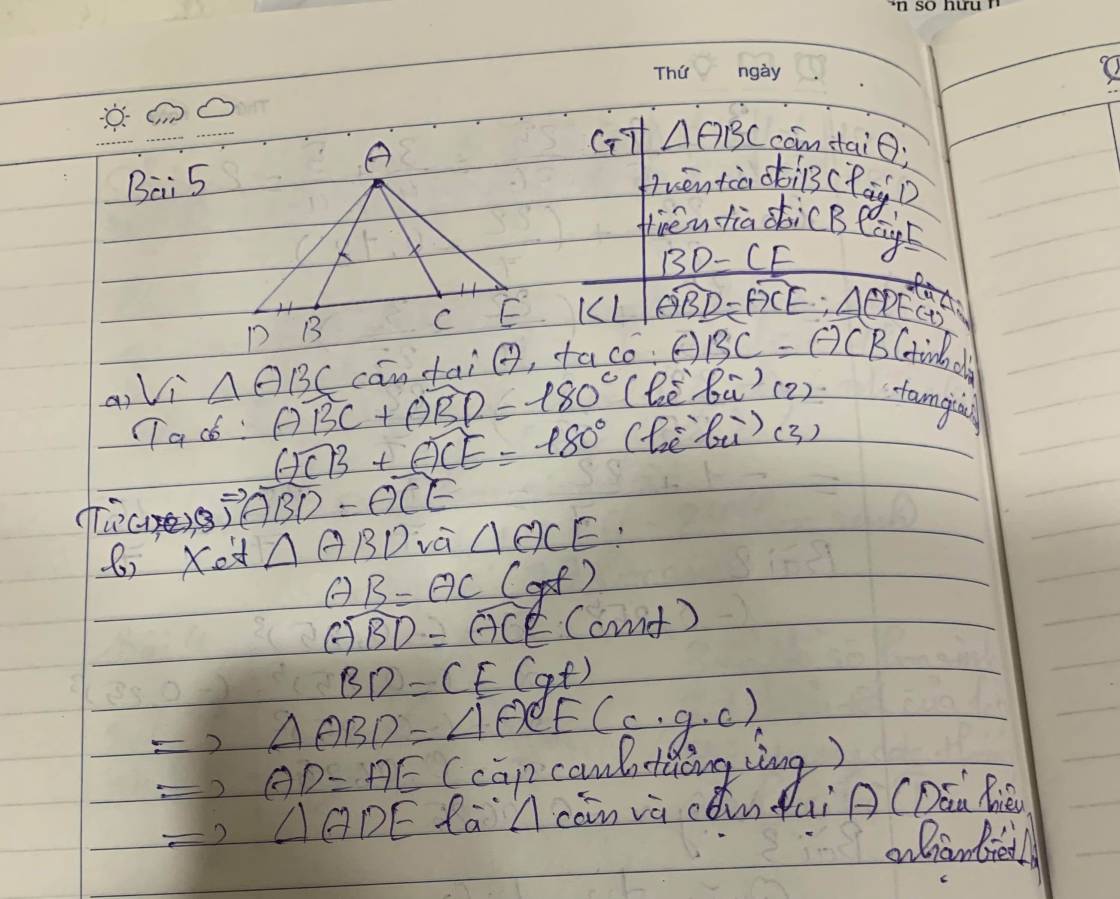 ên số hữu
Thứ ngày
Bài 5
A
D B C E
GT ΔABC cân tại A;
trên tia đối BC lấy D
trên tia đối CB lấy E
BD = CE
KL ABD = ACE; ΔADE là Δ cân
a, Vì ΔABC cân tại A, ta có: ABC = ACB (tính
tam giác
Ta có: ABC + ABD = 180° (kề bù) (2)
ACB + ACE = 180° (kề bù) (3)
Từ (1), (2), (3) => ABD = ACE
b, Xét Δ ABD và Δ ACE:
AB = AC (gt)
ABD = ACE (cmt)
BD = CE (gt)
=> ΔABD = ΔACE (c.g.c)
=> AD = AE (cặp cạnh tương ứng)
=> ΔADE là Δ cân và cân tại A (Dấu hiệu
nhận biết Δ